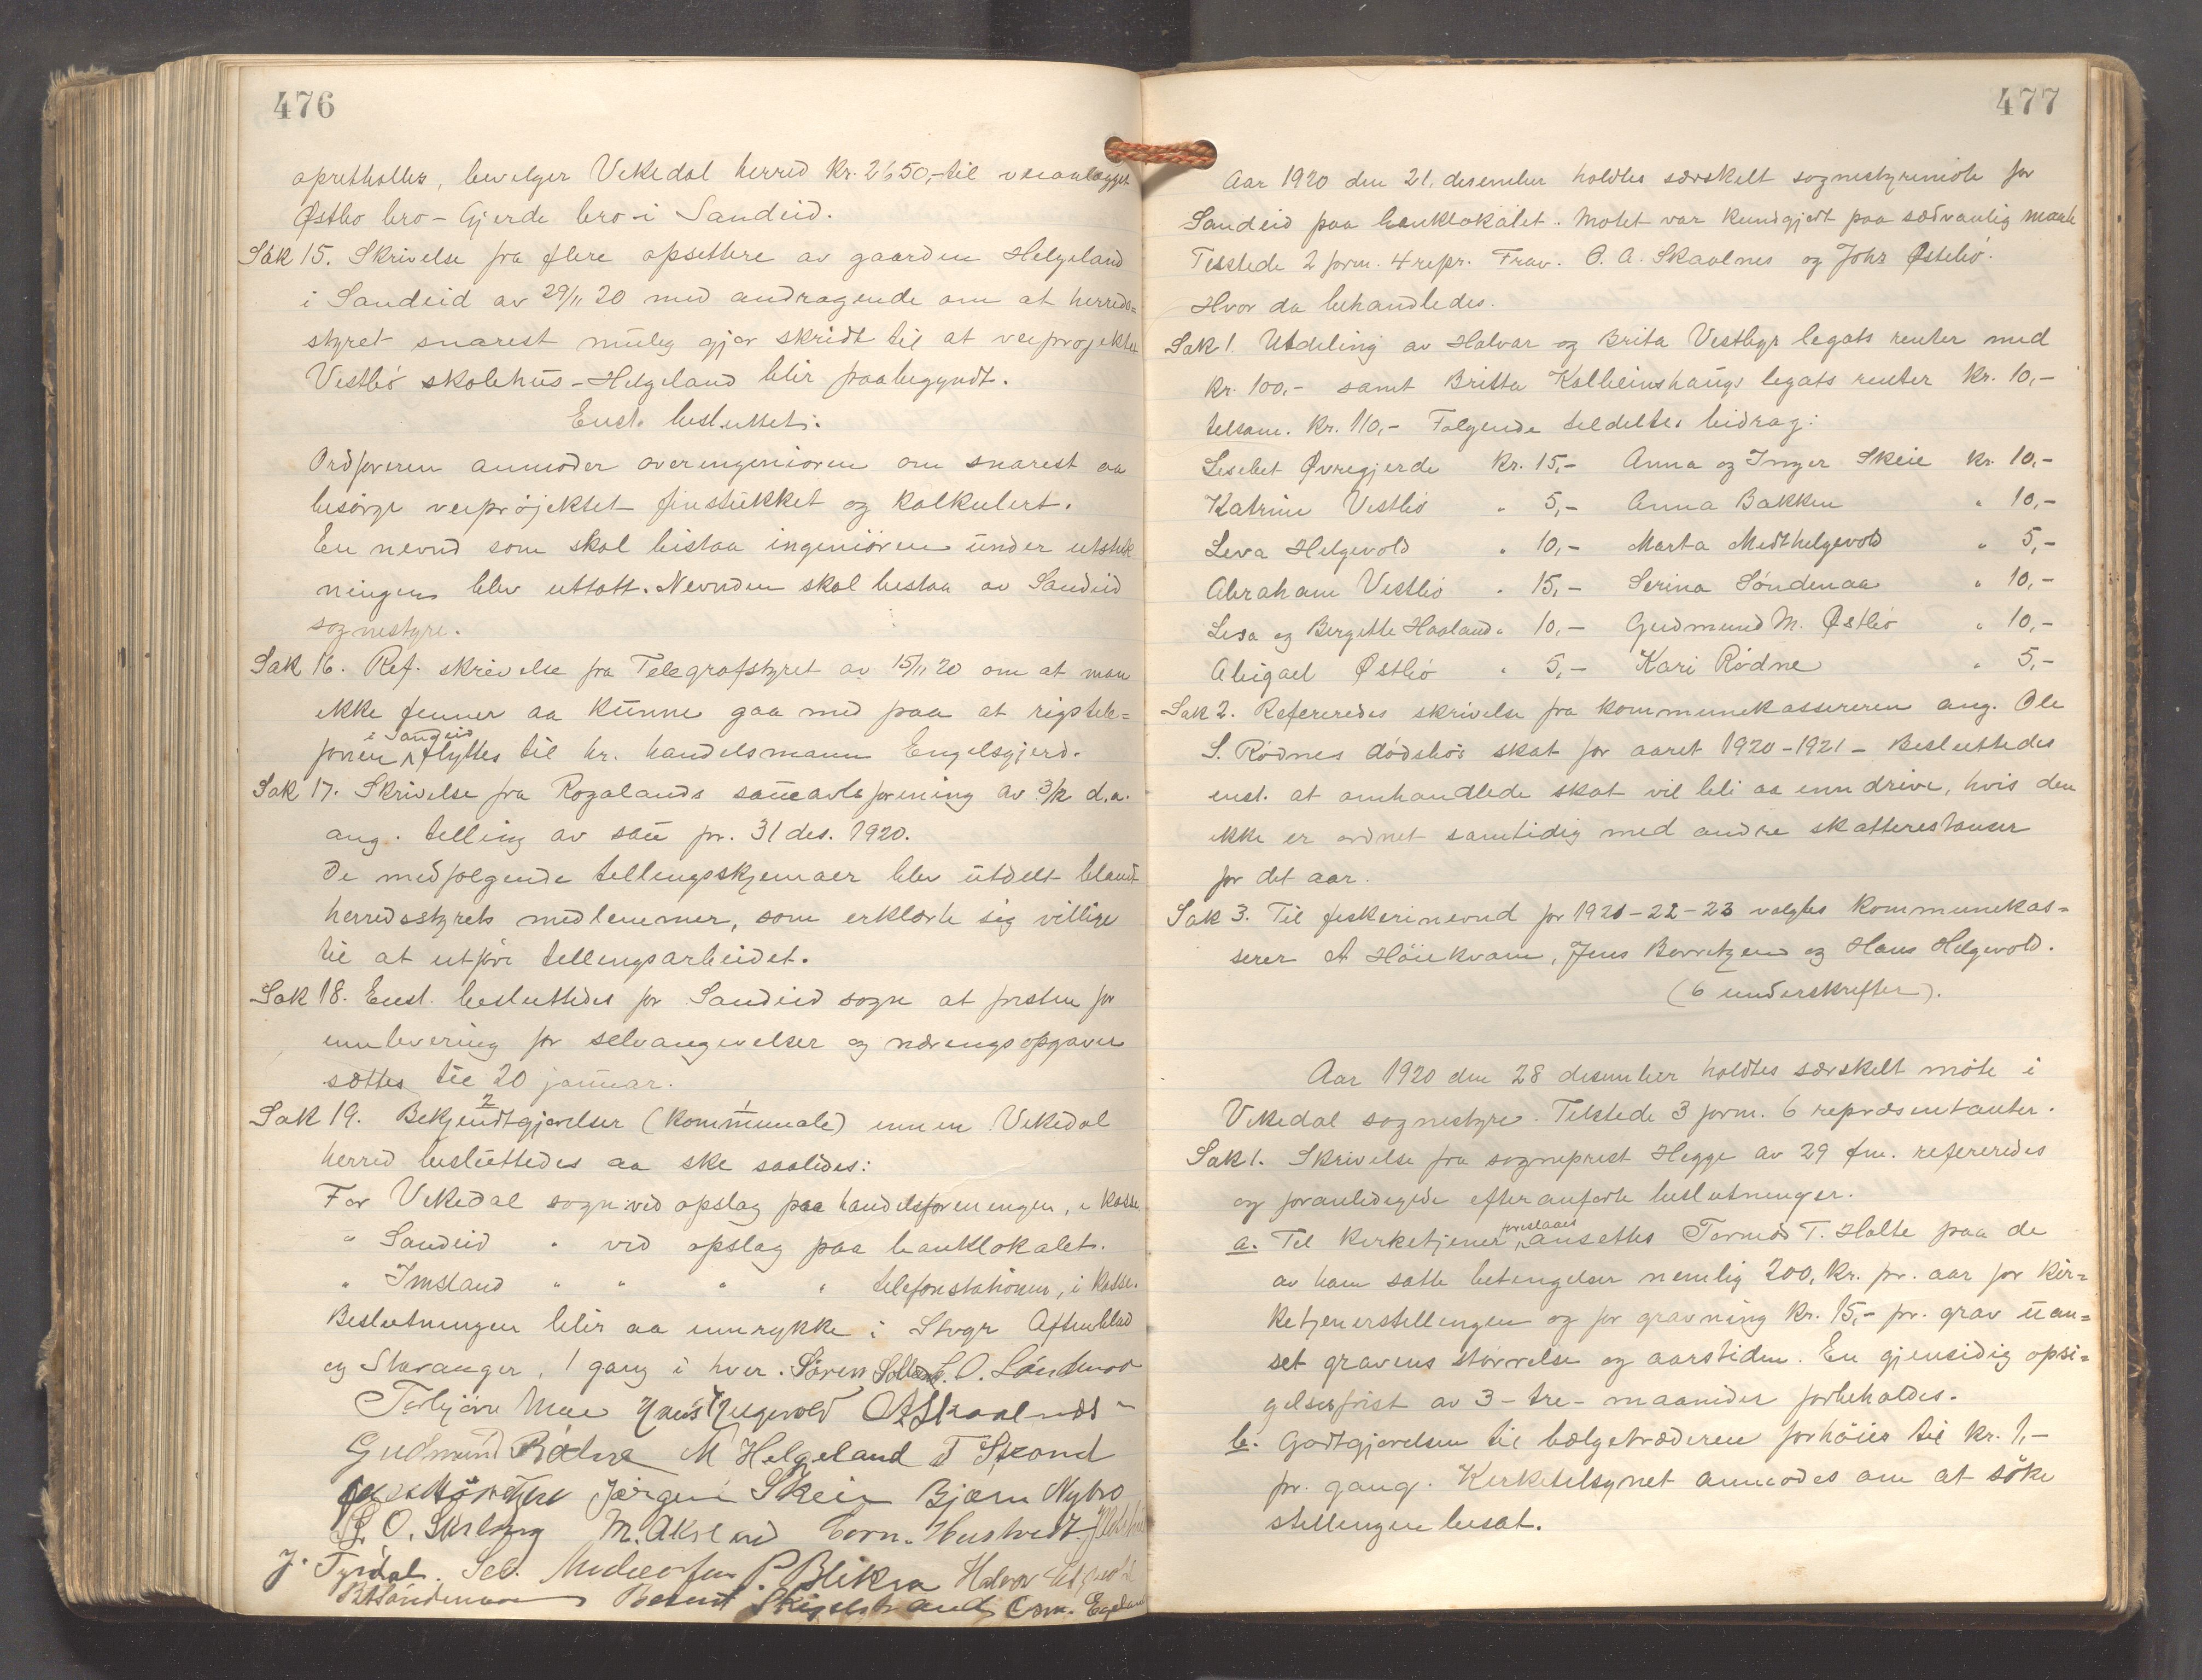 476
opretholles, bevilger Vikedal herred kr. 2650,- til veianlægget
Østbø bro - Gjerde bro i Sandeid.
Sak 15. Skrivelse fra flere opsittere av gaarden Helgeland
i Sandeid av 29/11 20 med andragende om at herreds-
styret snarest mulig gjør skridt til at veiprojektet
Vestbø skolehus - Helgeland blir paabegyndt.
Enst. besluttet:
Ordføreren anmoder overingeniøren om snarest aa
besørge veiprøjektet finstukket og kalkulert.
En nevnd som skal bistaa ingeniøren under utstik
ningen blev uttatt. Nevnden skal bestaa av Sandeid
sognestyre.
Sak 16. Ref. skrivelse fra Telegrafstyret av 15/11 20 om at man
ikke finner aa kunne gaa med paa at rigstele-
i Sandeid
fonen flyttes til hr. handelsmann Engelsgjerd.
Sak 17. Skrivelse fra Rogalands saueavls forening av 3/12 d.a.
ang. telling av sau pr. 31 des. 1920.
De medfølgende tellingsskjemaer blev utdelt blandt
herredsstyrets medlemmer, som erklærte sig villige
til at utføre tellingsarbeidet.
Sak 18. Enst. besluttedes for Sandeid sogn at fristen for
innlevering for selvangivelser og næringsopgaver
sættes til 20 januar.
Sak 19. Bekjendtgjørelser (kommunale) innen Vikedal
2 1
herred besluttedes aa ske saaledes:
For Vikedal sogn ved opslag paa handelsforeningen, i kasse
" Sandeid " ved opslag paa banklokalet.
" Imsland " " " " telefonstationen, i kasse.
Beslutningen blir aa innrykke i Stvgr Aftenblad
og Stavanger, 1 gang i hver. Søren L. O. Søndenaa
Torbjørn Hans Helgevold O A Skaalnes
Gudmund Rødne M Helgeland T Strand
Jørgen Skeie Bjarn Nybro
M. Akslend Corn. Hustvedt
J. Tyrdal. P. Blikra Halvor
Bernt Skigelstrand Corn. Egeland
477
Aar 1920 den 21. desember holdtes særskelt sognestyremøte for
Sandeid paa banklokalet. Møtet var kundgjort paa sædvanlig maate
Tilstede 2 form. 4 repr. Frav. O. A. Skaalnes og Johs Østebø.
Hvor da behandledes.
Sak 1. Utdeling av Halvar og Brita Vestbyes legats renter med
kr. 100,- samt Britta Kolbeinshaugs legats renter kr. 10,-
tilsam. kr. 110,- Følgende tildeltes bidrag:
Lisebet Øvregjerde kr. 15,- Anna og Inger Skeie kr. 10,-
Katrine Vestbø " 5,- Anna Bakken " 10,-
Leva Helgevold " 10,- Marta Medthelgevold " 5,-
Abraham Vestbø " 15,- Serina Søndenaa " 10,-
Lisa og Bergitte Haaland " 10,- Gudmund M. Østbø " 10,-
Abigael Østbø " 5,- Kari Rødne " 5,-
Sak 2. Refereredes skrivelse fra kommunekassereren ang. Ole
S. Rødnes dødsbos skat for aaret 1920-1921 - Besluttedes
enst. at omhandlede skat vil bli aa inndrive, hvis den
ikke er ordnet samtidig med andre skatterestanser
for det aar.
Sak 3. Til fiskerinevnd for 1921-22-23 valgtes kommunekas-
serer A Høiekvam, Jens Børretzen og Hans Helgevold.
(6 underskrifter).
Aar 1920 den 28 desember holdtes særskelt møte i
Vikedal sognestyre. Tilstede 3 form. 6 repræsentanter.
Sak 1. Skrivelse fra sogneprest Hegge av 29 fm. refereredes
og foranledigede efteranførte beslutninger.
foreslaaes
a. Til kirketjener ansettes Tormod T. Holte paa de
av ham satte betingelser nemlig 200, kr. pr. aar for kir-
ketjenerstellingen og for gravning kr. 15,- pr. grav uan-
set gravens størrelse og aarstiden. En gjensidig opsi-
gelsesfrist av 3 - tre - maaneder forbeholdes.
b. Godtgjørelsen til bælgetræderen forhøies til kr. 1,-
pr. gang. Kirketilsynet anmodes om at søke
stellingen besat.